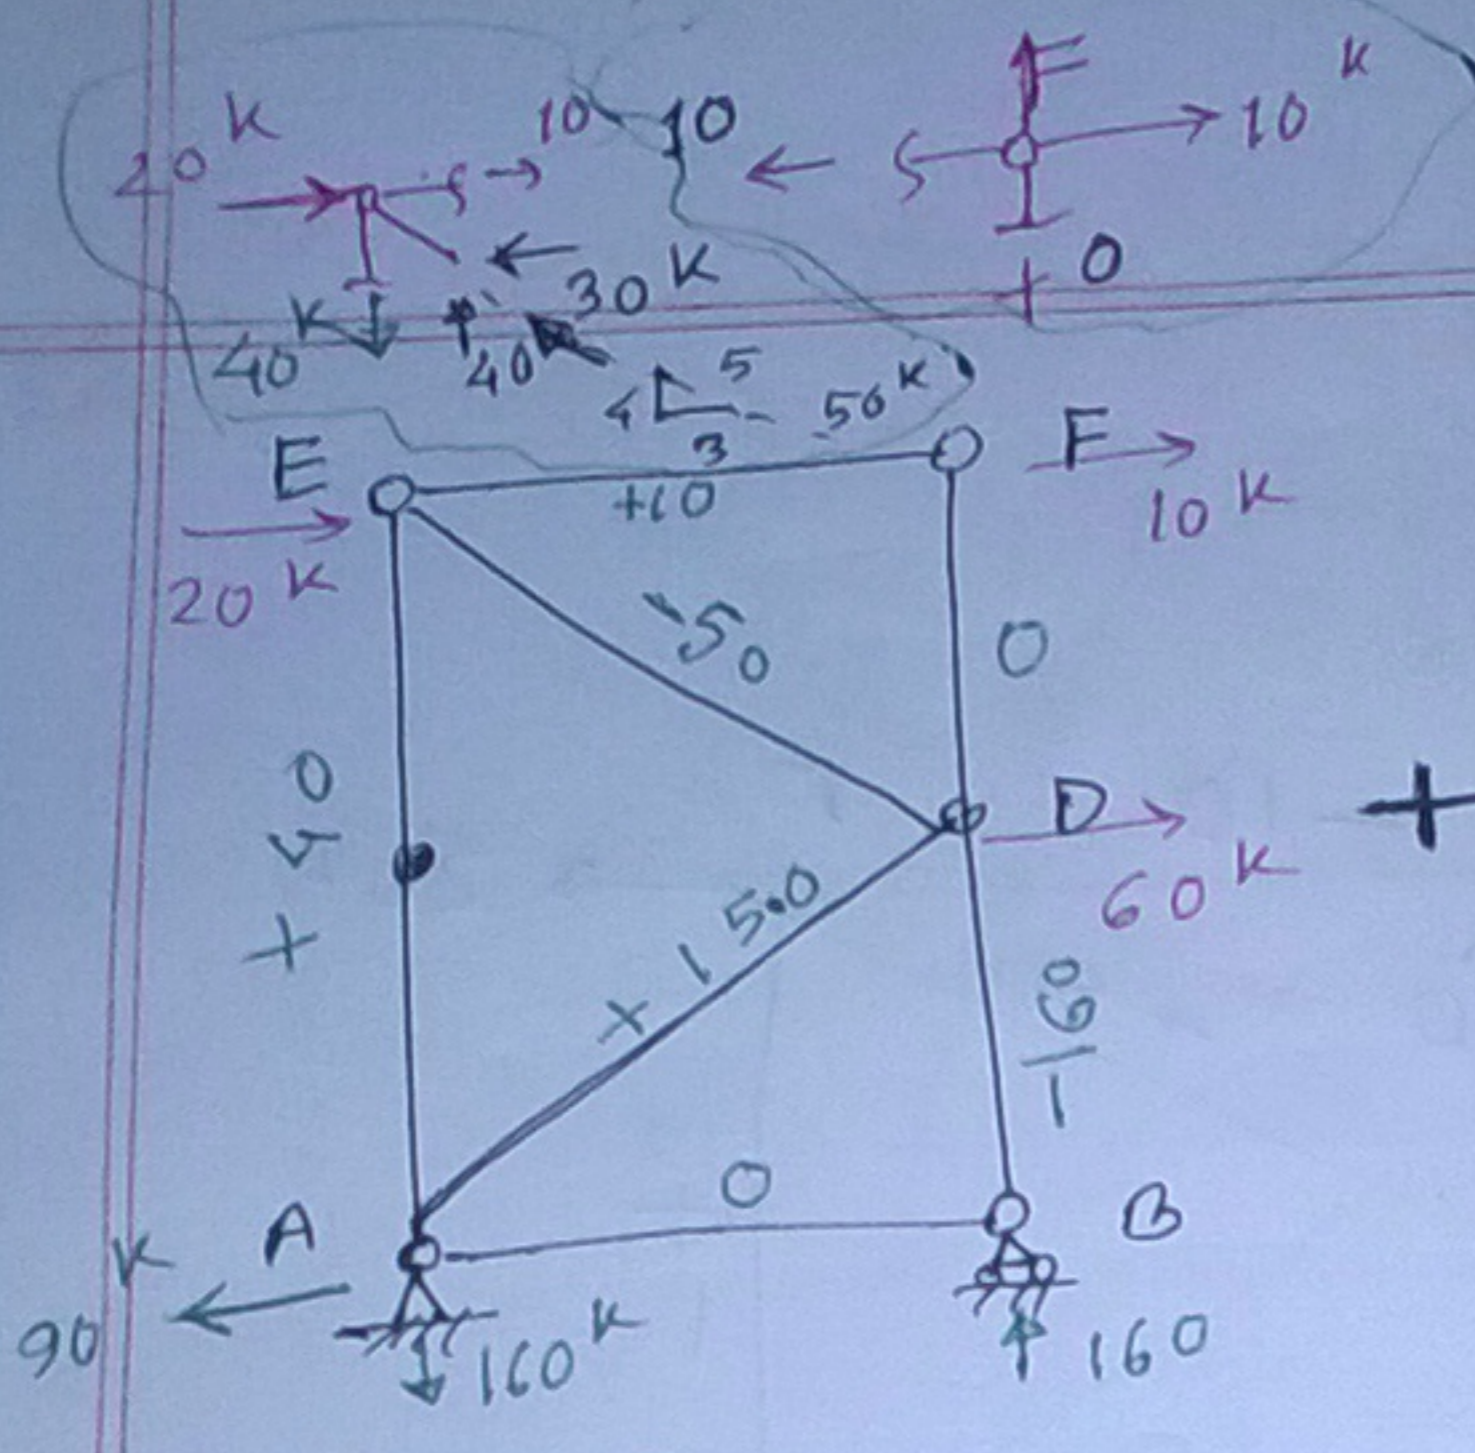 20 K
10
10
10 K
0
40 K
40
30 K
4 5 3
50 K
E
+10
F
10 K
20 K
-50
0
+40
D
60 K
+
+150.0
-160
0
A
B
90 K
160 K
160